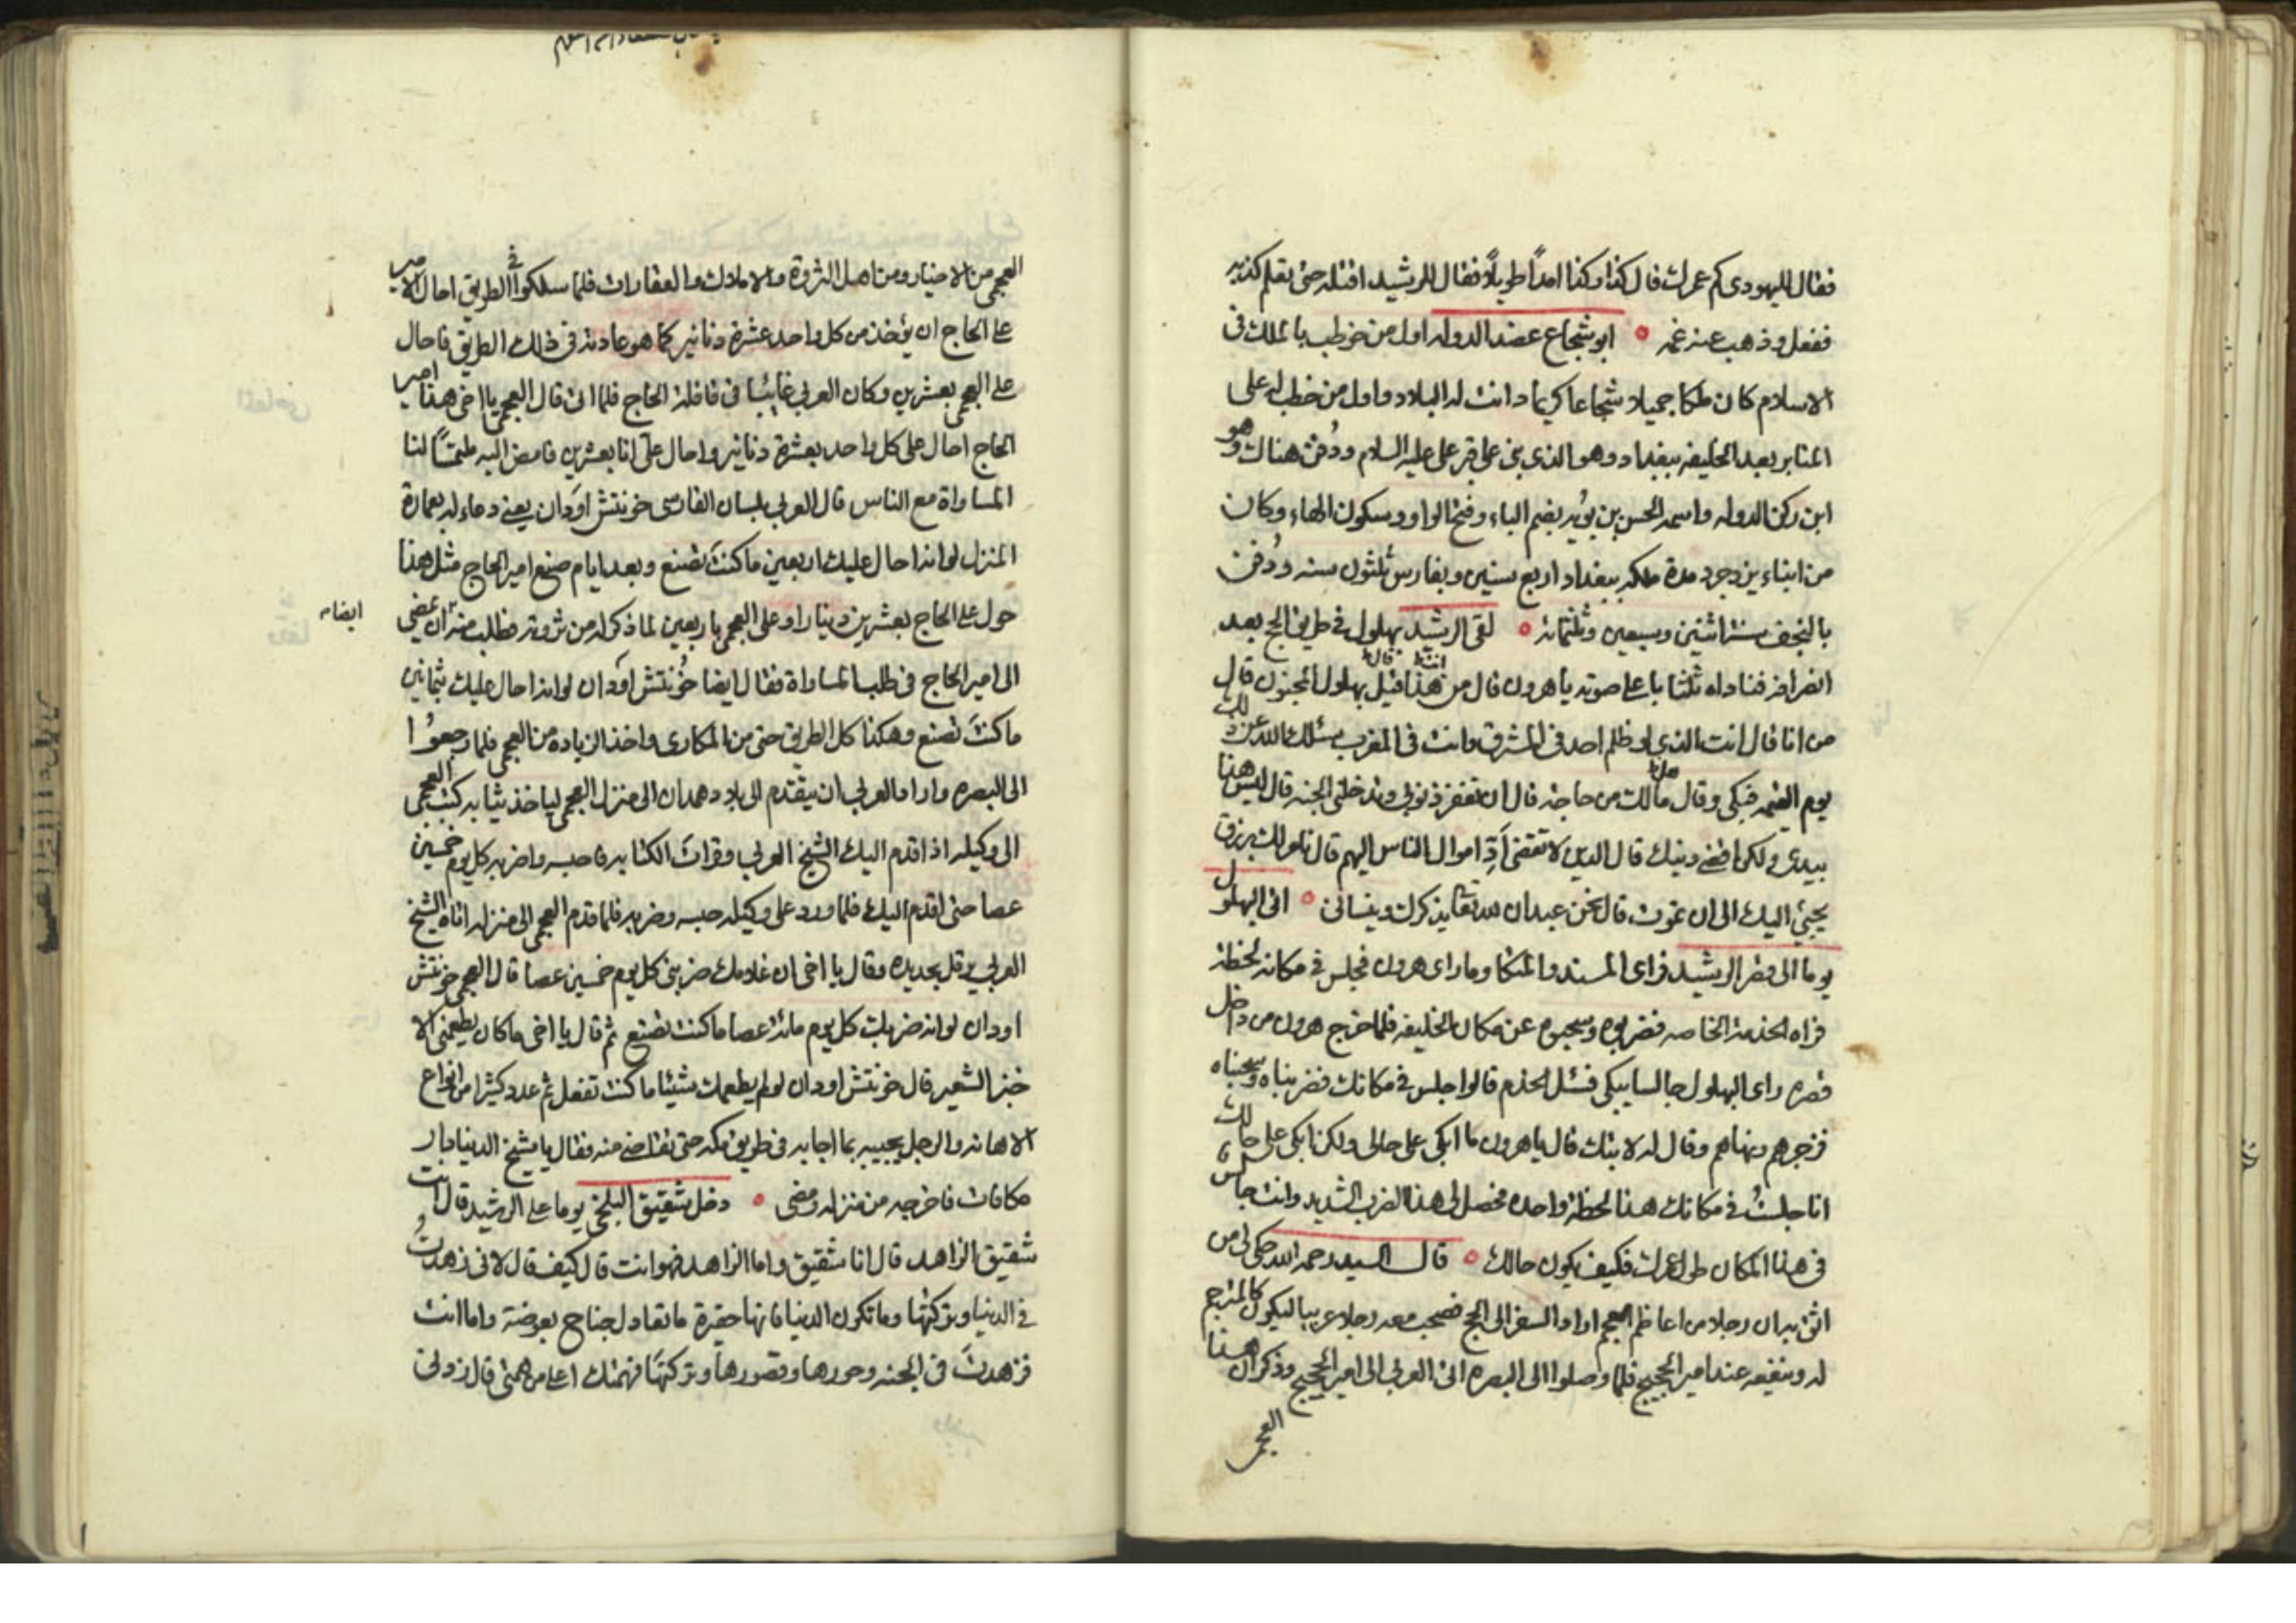 فقال لليهودى كم عمرك قال كذا وكذا امداً طويلاً فقال للرشيد اقتله حتى تعلم كذبه
ففعل وذهب عنه غمه ابو شجاع عضد الدوله اول من خوطب بالملك فى
الاسلام كان ملكا جميلا شجاعا كريما دانت له البلاد واول من خطب له على
المنابر بعد الخليفه ببغداد وهو الذى بنى على قبر على عليه السلام ودُفن هناك وهو
ابن ركن الدوله واسمه الحسن بن بُويَه بضم الباء وفتح الواو وسكون الهاء وكان
من ابناء يزدجرد مدة ملكه ببغداد اربع سنين وبفارس ثلثون سنه ودُفن
بالنجف سنة اثنتين وسبعين وثلثمائة لقى الرشيد بهلول فى طريق الحج بعد
انصرافه فناداه ثلثا باعلى صوته ياهرون قال من هذا قيل بهلول المجنون قال
من انا قال انت الذى لو ظلم احد فى المشرق وانت فى المغرب سئلك الله عن ذلك
يوم القيمه فبكى وقال هل لك من حاجة قال ان تغفر ذنوبى وتدخلنى الجنه قال ليس هذا
بيدى ولكن اقضى دينك قال الدين لا تقضى ادِّ اموال الناس اليهم قال نامر لك برزق
يجيئ اليك الى ان تموت قال نحن عبدان لله تعا يذكرك وينسانى اتى البهلول
يوما الى قصر الرشيد فراى المسند والمتكا وما راى هرون فجلس فى مكانه لحظة
فراه الخدمة الخاصه فضربوه وسحبوه عن مكان الخليفه فلما خرج هرون من داخل
قصره راى البهلول جالسا يبكى فسئل الخدم قالوا جلس فى مكانك فضربناه وسحبناه
فزجرهم ونهاهم وقال له لا تبك قال ياهرون ما ابكى على حالى ولكن ابكى على حالك
انا جلستُ فى مكانك هذا لحظة واحده فحصل لى هذا الضرب الشديد وانت جالس
فى هذا المكان طول عمرك فكيف يكون حالك قال السيد رحمه الله حكى لى من
اثق به ان رجلا من اعاظم العجم اراد السفر الى الحج فصحب معه رجلا عربيا ليكون كالمترجم
له وينفعه عند امير الحجيج فلما وصلوا الى البصره اتى العربى الى امير الحجيج وذكر ان هذا
العجمى
العجمى من الاخيار ومن اهل الثروة والاملاك والعقارات فلما سلكوا فى الطريق احال الامير
على الحاج ان يؤخذ من كل واحد عشرة دنانير كما هو عادته فى ذلك الطريق فاحال
على العجمى بعشرين وكان العربى غائبا فى قافلة الحاج فلما اتى قال العجمى يا اخى هذا امير
الحاج احال على كل واحد بعشرة دنانير واحال علىّ انا بعشرين فامض اليه ملتمسًا لنا
المساواة مع الناس قال العربى بلسان الفارسى خونتش اودان يعنى دعاء له بعمارة
المنزل لو انه احال عليك اربعين ما كنتَ تصنع وبعد ايام صنع امير الحاج مثل هذا
حول على الحاج بعشرين دينارا وعلى العجمى باربعين لما ذكر له من ثروته فطلب منه ان يمضى
ايضا
الى امير الحاج فى طلب المساواة فقال ايضا خُونتش اودان لو انه احال عليك ثمانين
ما كنتَ تصنع وهكذا كل الطريق حتى من المكارى واخذ الزياده من العجمى فلما رجعوا
الى البصره واراد العربى ان يتقدم الى بلاد همدان الى منزل العجمى لياخذ ثيابه كتب العجمى
الى وكيله اذا قدم اليك الشيخ العربى وقرأت الكتابه فاحبسه واضربه كل يوم خمسين
عصا حتى اقدم اليك فلما ورد على وكيله حبسه وضربه فلما قدم العجمى الى منزله اتاه الشيخ
العربى وقال يا اخى ان غلامك ضربنى كل يوم خمسين عصا قال العجمى خونتش
اودان لو انه ضربك كل يوم مائة عصا ما كنت تصنع ثم قال يا اخى ما كان يطعمنى الا
خبز الشعير قال خونتش اودان لو لم يطعمك شيئا ما كنت تفعل ثم عدد كثيرا من انواع
الاهانه والرجل يجيبه بما اجابه فى طريق مكه حتى تقاضى منه فقال يا شيخ الدنيا دار
مكافات فاخرجه من منزله ومضى دخل شقيق البلخى يوما على الرشيد قال انت
شقيق الزاهد قال انا شقيق واما الزاهد فهو انت قال كيف قال لانى زهدتُ
فى الدنيا وتركتها وما تكون الدنيا فانها حقيرة ما تعادل جناح بعوضة واما انت
فزهدتَ فى الجنه وحورها وقصورها وتركتها فهمتك اعلى من همتى قال زدنى